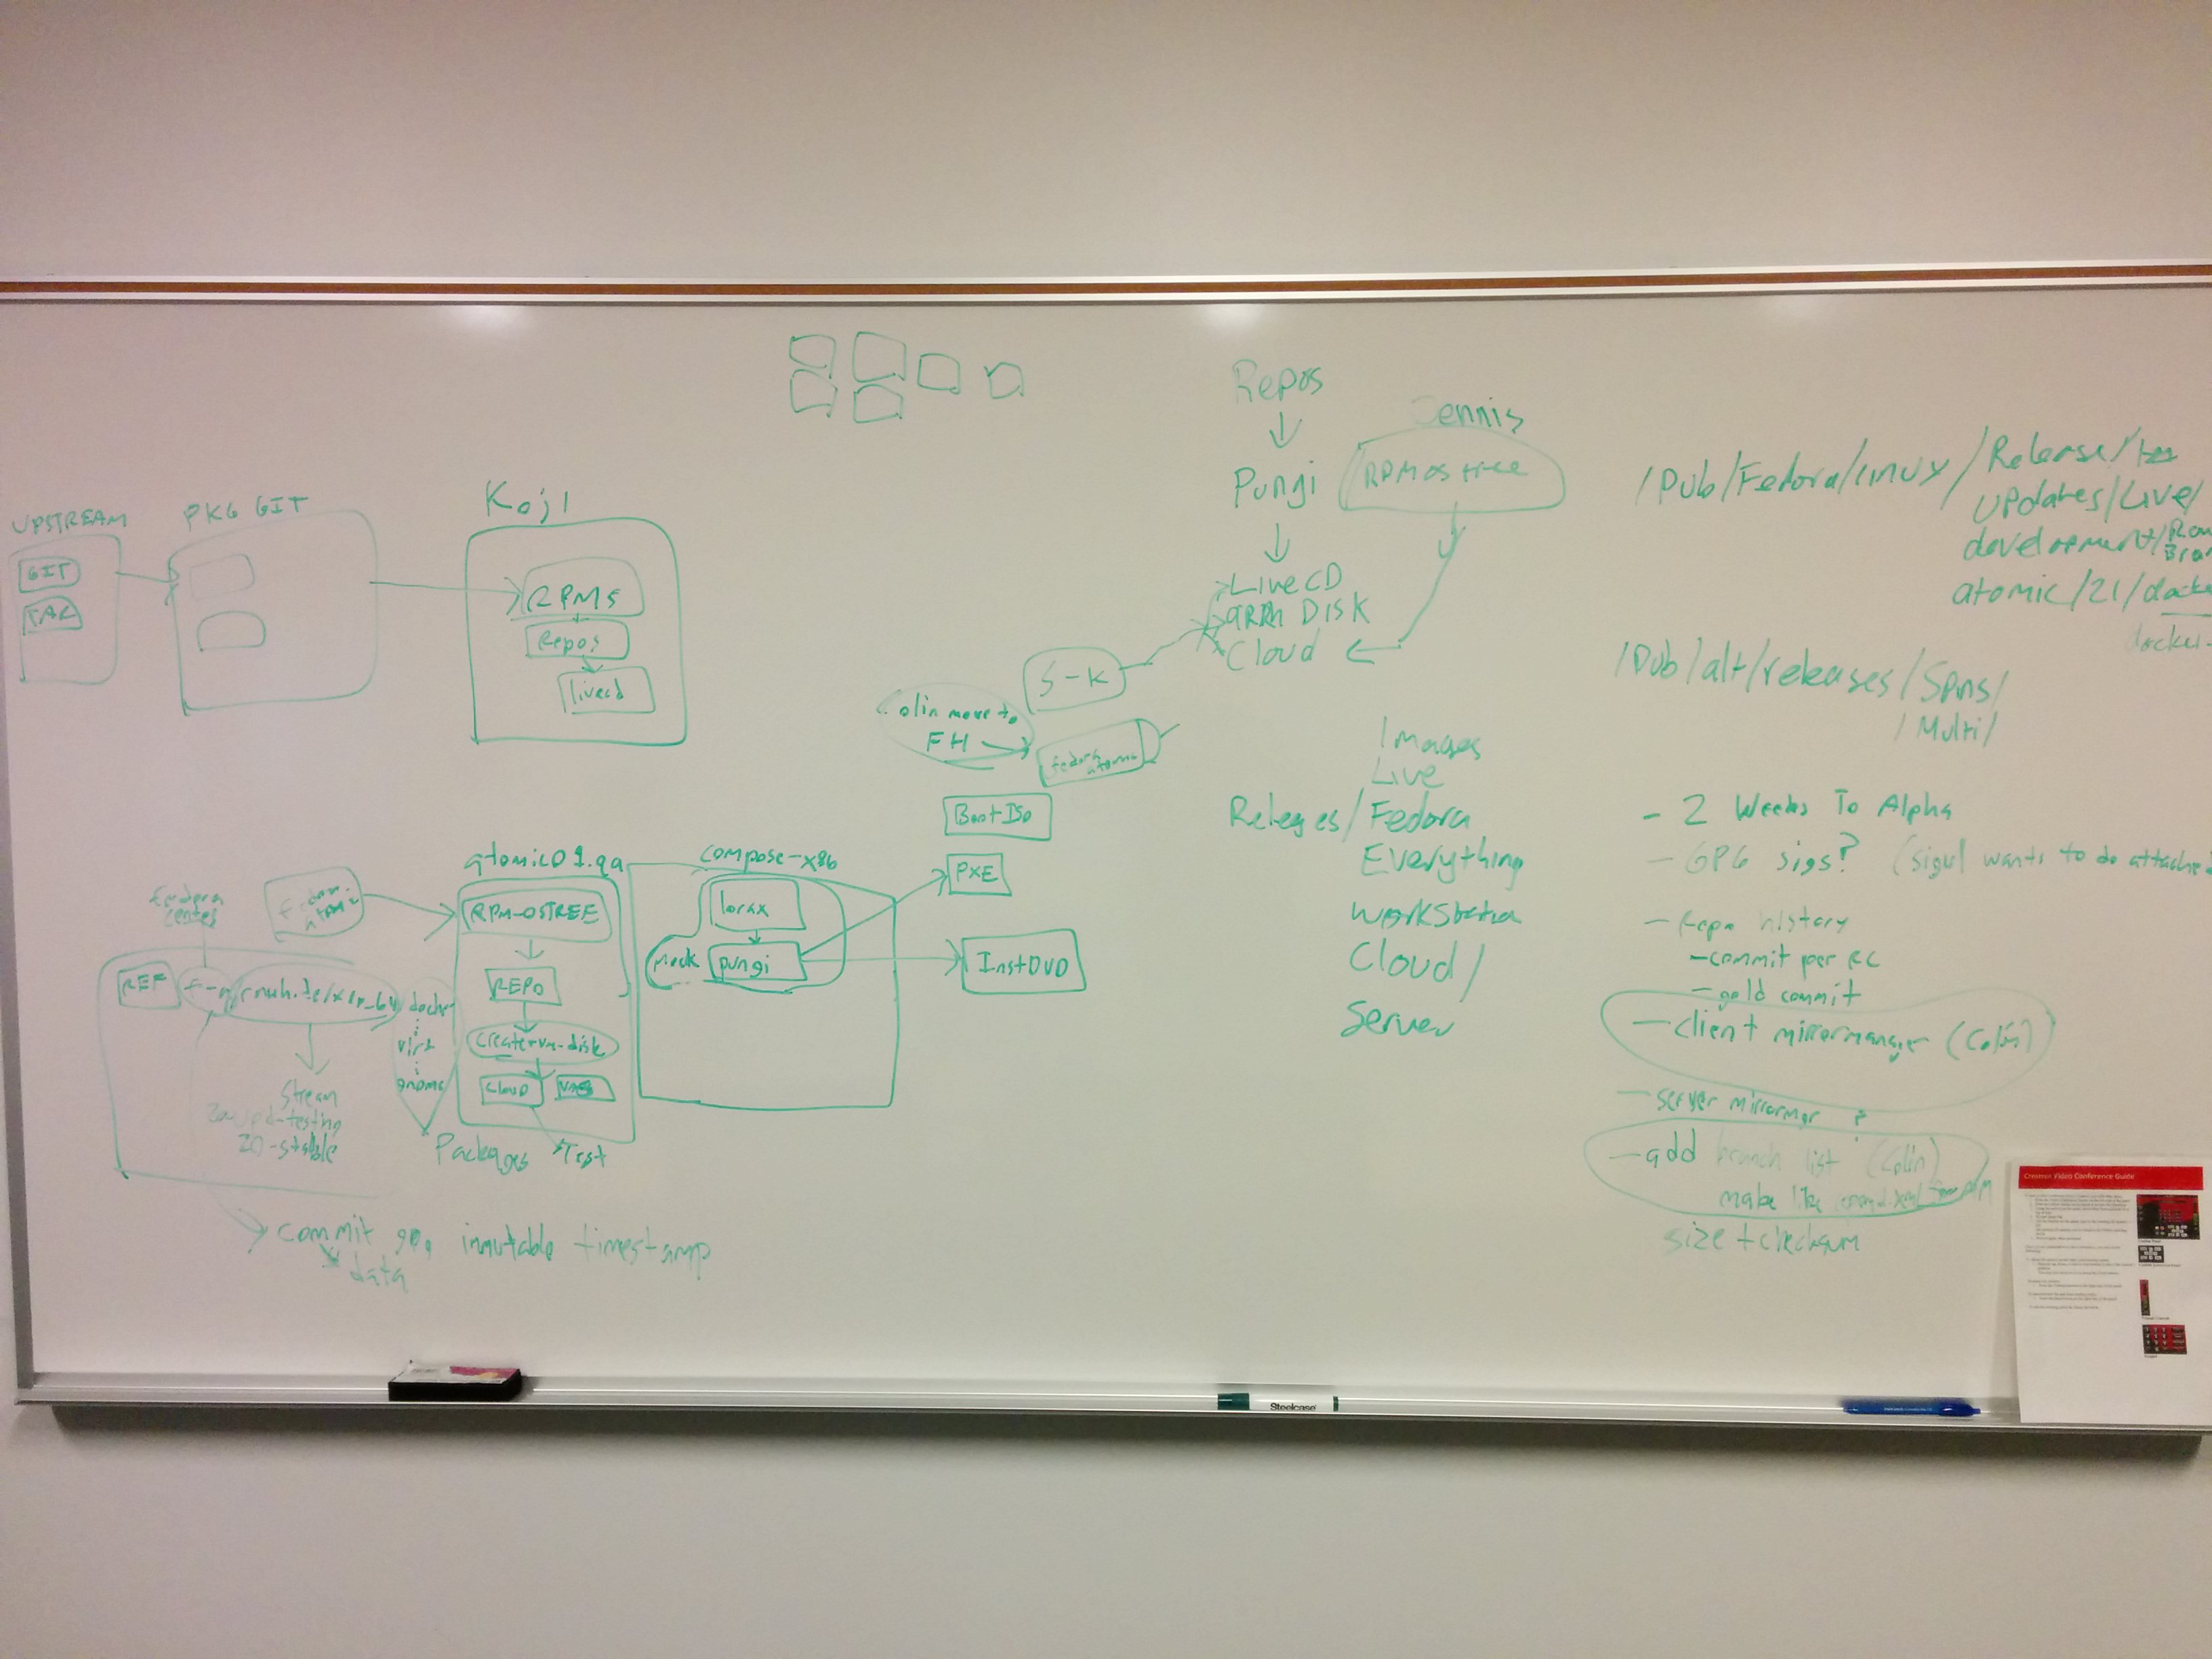 UPSTREAM
GIT
TAR
PKG GIT
Koji
RPMS
Repos
livecd
Repos
Pungi
Dennis
RPM os tree
LiveCD
ARM DISK
Cloud
S-K
Colin move to
FH
fedora
atomic
Boot ISO
PXE
InstDVD
Images
Live
Releges/Fedora
Everything
Workstation
Cloud/
Server
/Pub/Fedora/linux/Release/
updates/Live/
development/
atomic/21/
docker-
/Pub/alt/releases/Spins/
/Multi/
- 2 Weeks To Alpha
- GPG sigs? (sigul wants to do attached
- Repo history
- commit per RC
- gold commit
- client mirrormanger (Colin)
- server mirrormgr
- add branch list (Colin)
make like
size + checksum
atomic01.qa
RPM-OSTREE
REPO
create-vm-disk
CLOUD
Test
compose-x86
lorax
Mock
pungi
REF
docker
virt
gnome
Packages
Stream
20-stable
commit gpg immutable timestamp
data
Steelcase
Creator Video Conference Guide